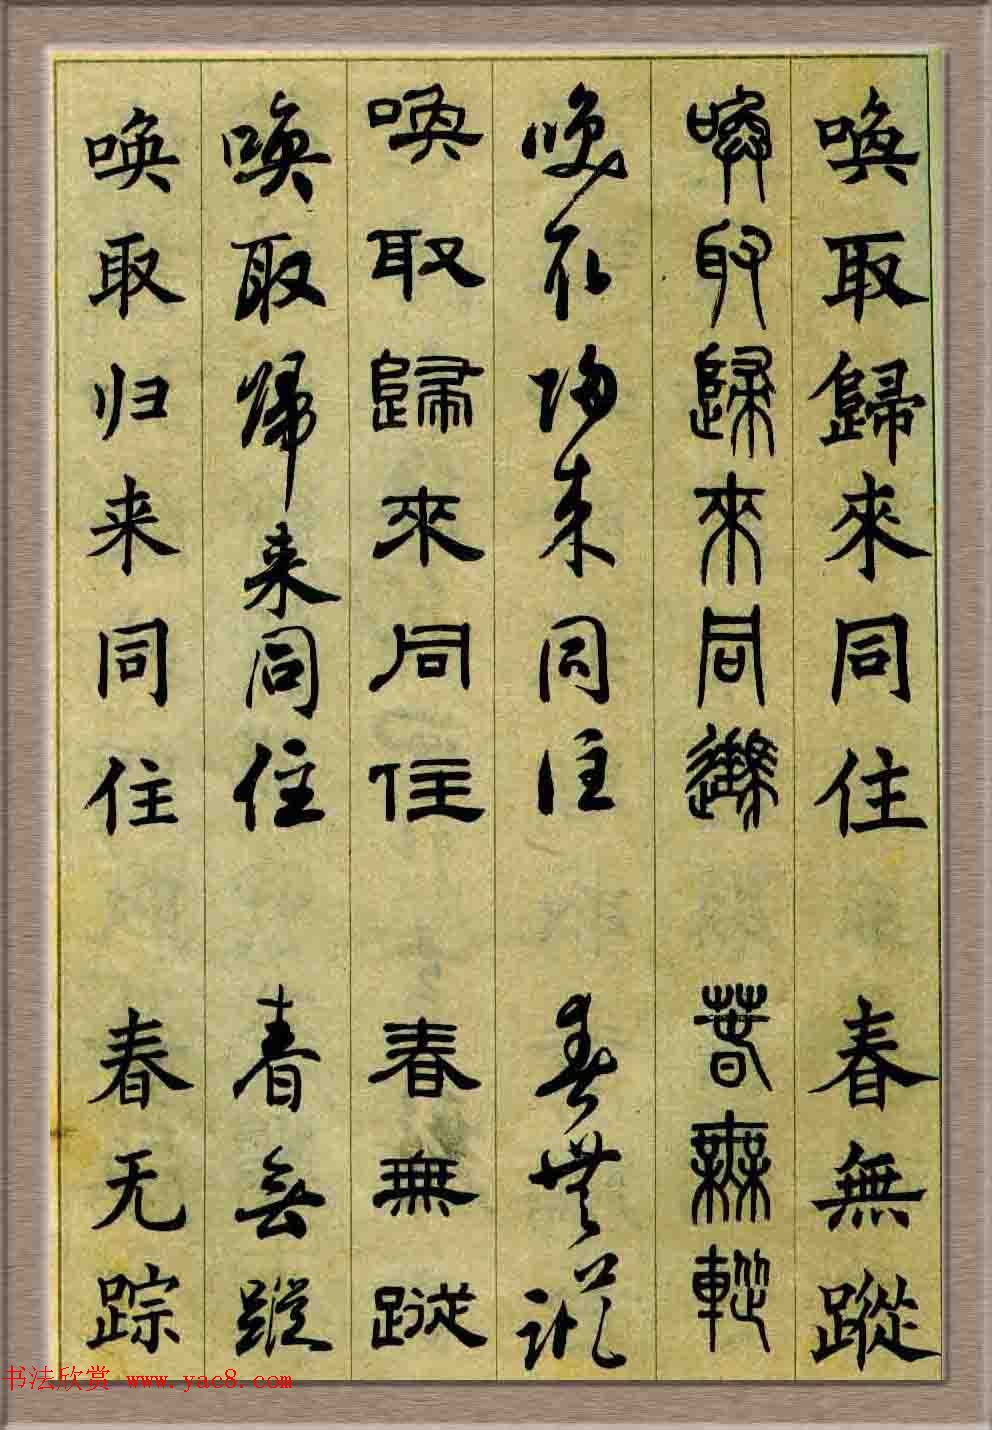 喚取歸來同住 春無蹤
喚取歸來同住 春無蹤
喚取歸來同住 春無蹤
喚取歸來同住 春無蹤
喚取歸来同住 春無蹤
唤取归来同住 春无踪
书法欣赏 www.yac8.com